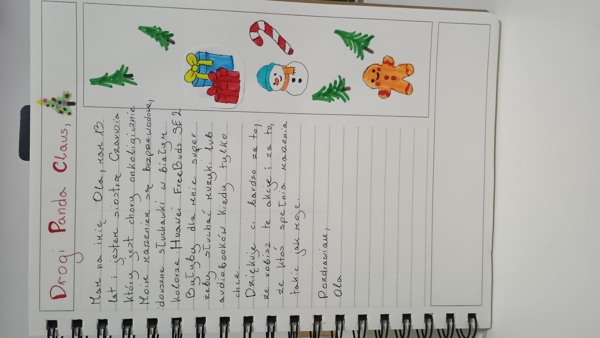 Drogi Panda Claus,
Mam na imię Ola, mam 13
lat i jestem siostrą Czarusia
który jest chory onkologicznie
Moim marzeniem są bezprzewodowe,
douszne słuchawki w białym
kolorze Huawei FreeBuds SE 2
Byłyby dla mnie super
żeby słuchać muzyki lub
audiobooków kiedy tylko
chcę.
Dziękuję ci bardzo za to,
że robisz tę akcję i za to,
że ktoś spełnia marzenia
takie jak moje.
Pozdrawiam,
Ola